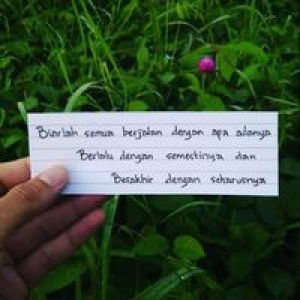 Biarlah semua berjalan dengan apa adanya
Berlalu dengan semestinya dan
Berakhir dengan seharusnya